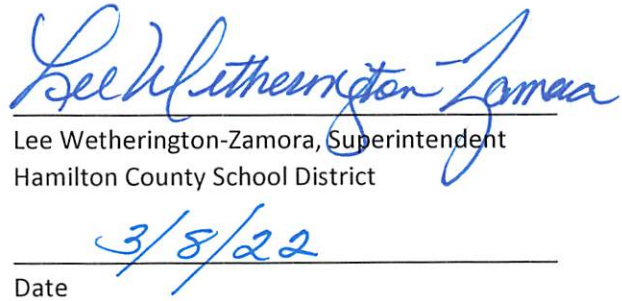 Lee Wetherington-Zamora
Lee Wetherington-Zamora, Superintendent
Hamilton County School District
3/8/22
Date